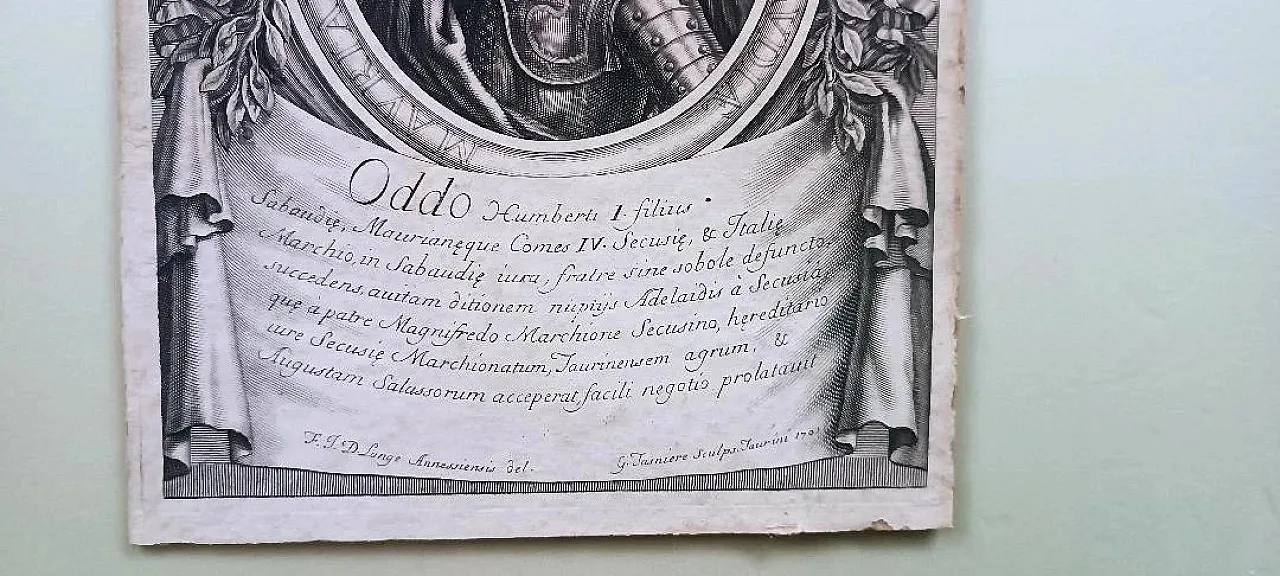 Oddo Humberti I. filius
Sabaudię, Maurianęque Comes IV. Secusię, & Italię
Marchio, in Sabaudię iura, fratre sine sobole defuncto,
succedens, auitam ditionem nuptijs Adelaidis à Secusia,
quę à patre Magnifredo Marchione Secusino, hęreditario
iure Secusię Marchionatum, Taurinensem agrum, &
Augustam Salassorum acceperat, facili negotio prolatauit
F. I. D. Lange Annessiensis del.
G. Tasniere Sculps. Taurini